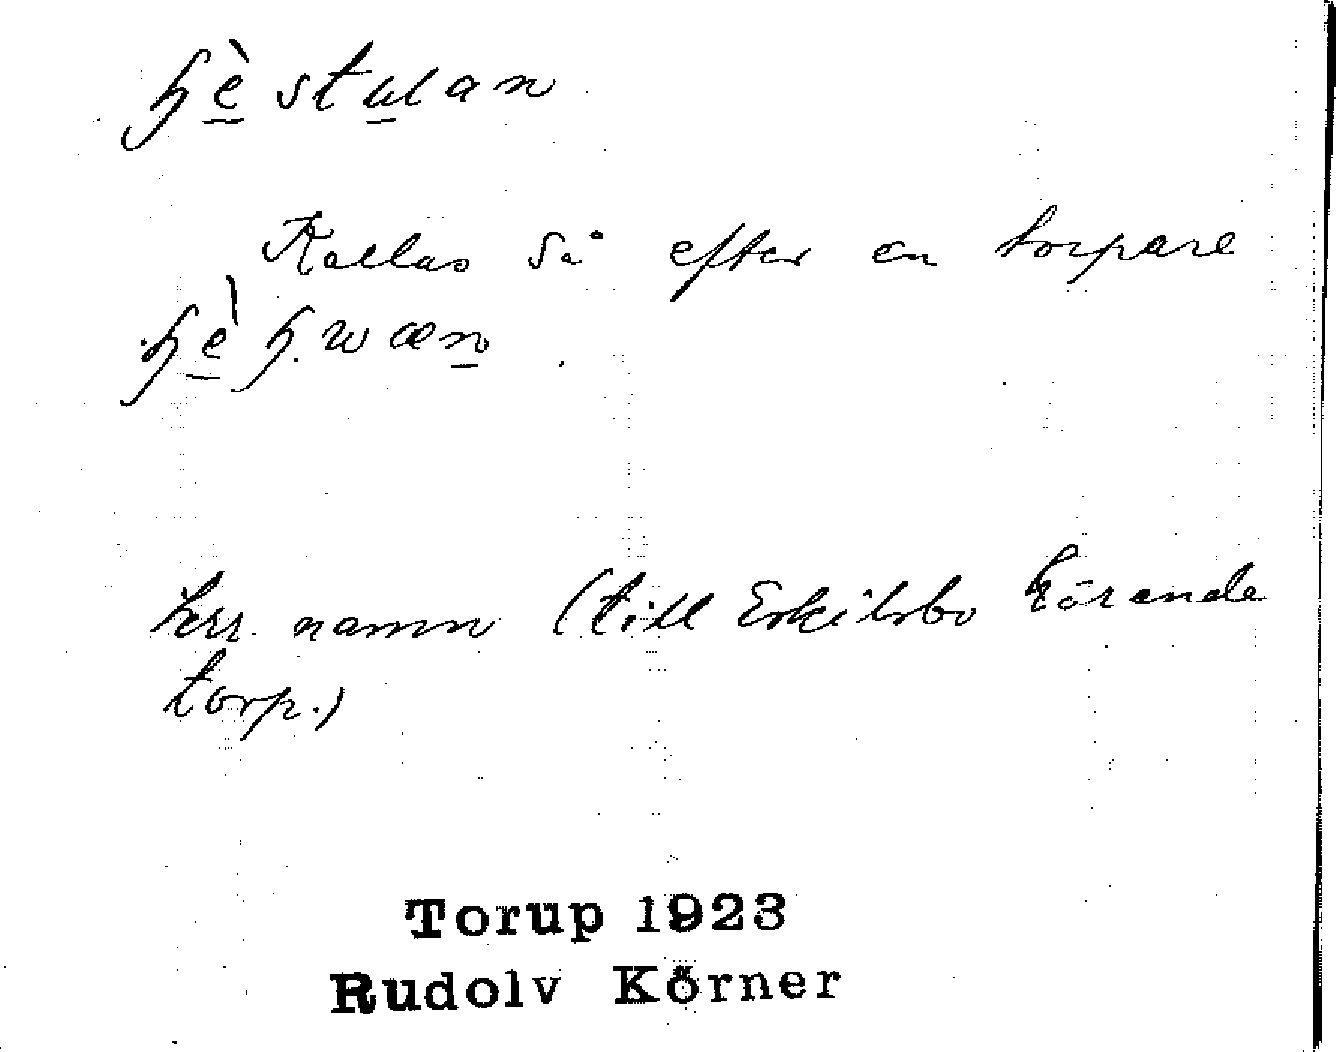 hè stulan
Kallas så efter en torpare
hè h. wæn.
terr. namn (till Eskilsbo hörande
torp.)
Torup 1923
Rudolv Körner